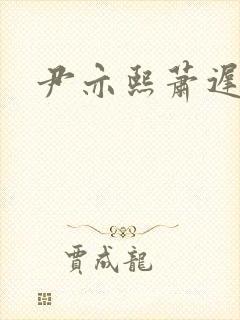 尹亦熙蕭遲
賈成龍